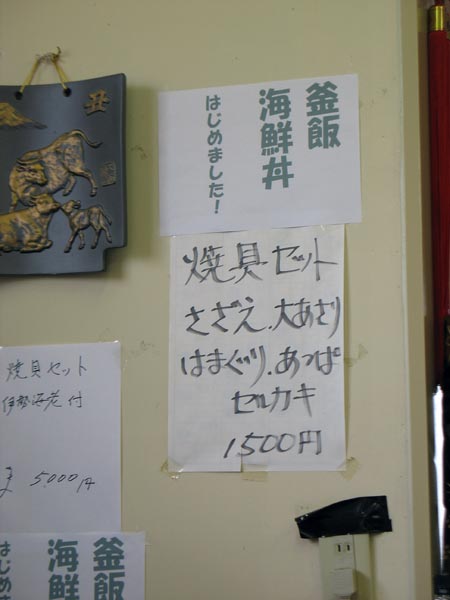 丑
釜飯
海鮮丼
はじめました！
焼貝セット
さざえ.大あさり
はまぐり.あっぱ
セルカキ
1500円
焼貝セット
伊勢海老付
5,000円
釜飯
海鮮
はじめ